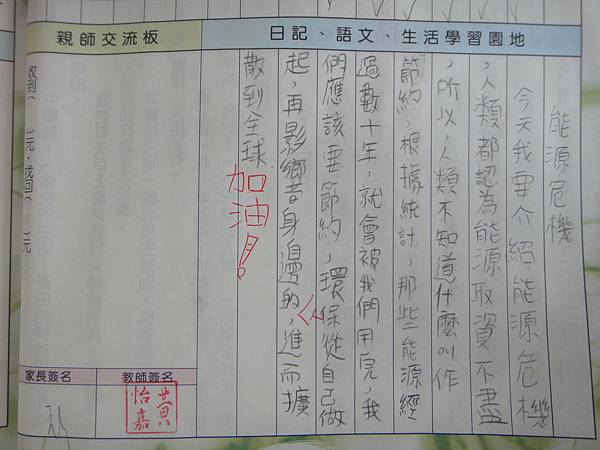 親師交流板
日記、語文、生活學習園地
能源危機
今天我要介紹能源危機
，人類都認為能源取資不盡
，所以，人類不知道什麼叫作
節約，根據統計，那些能源經
過數十年，就會被我們用完，我
們應該要節約，環保從自己做
起，再影響身邊的人，進而擴
散到全球
加油！
收到( )元．找回( )元
家長簽名
教師簽名
黃怡嘉